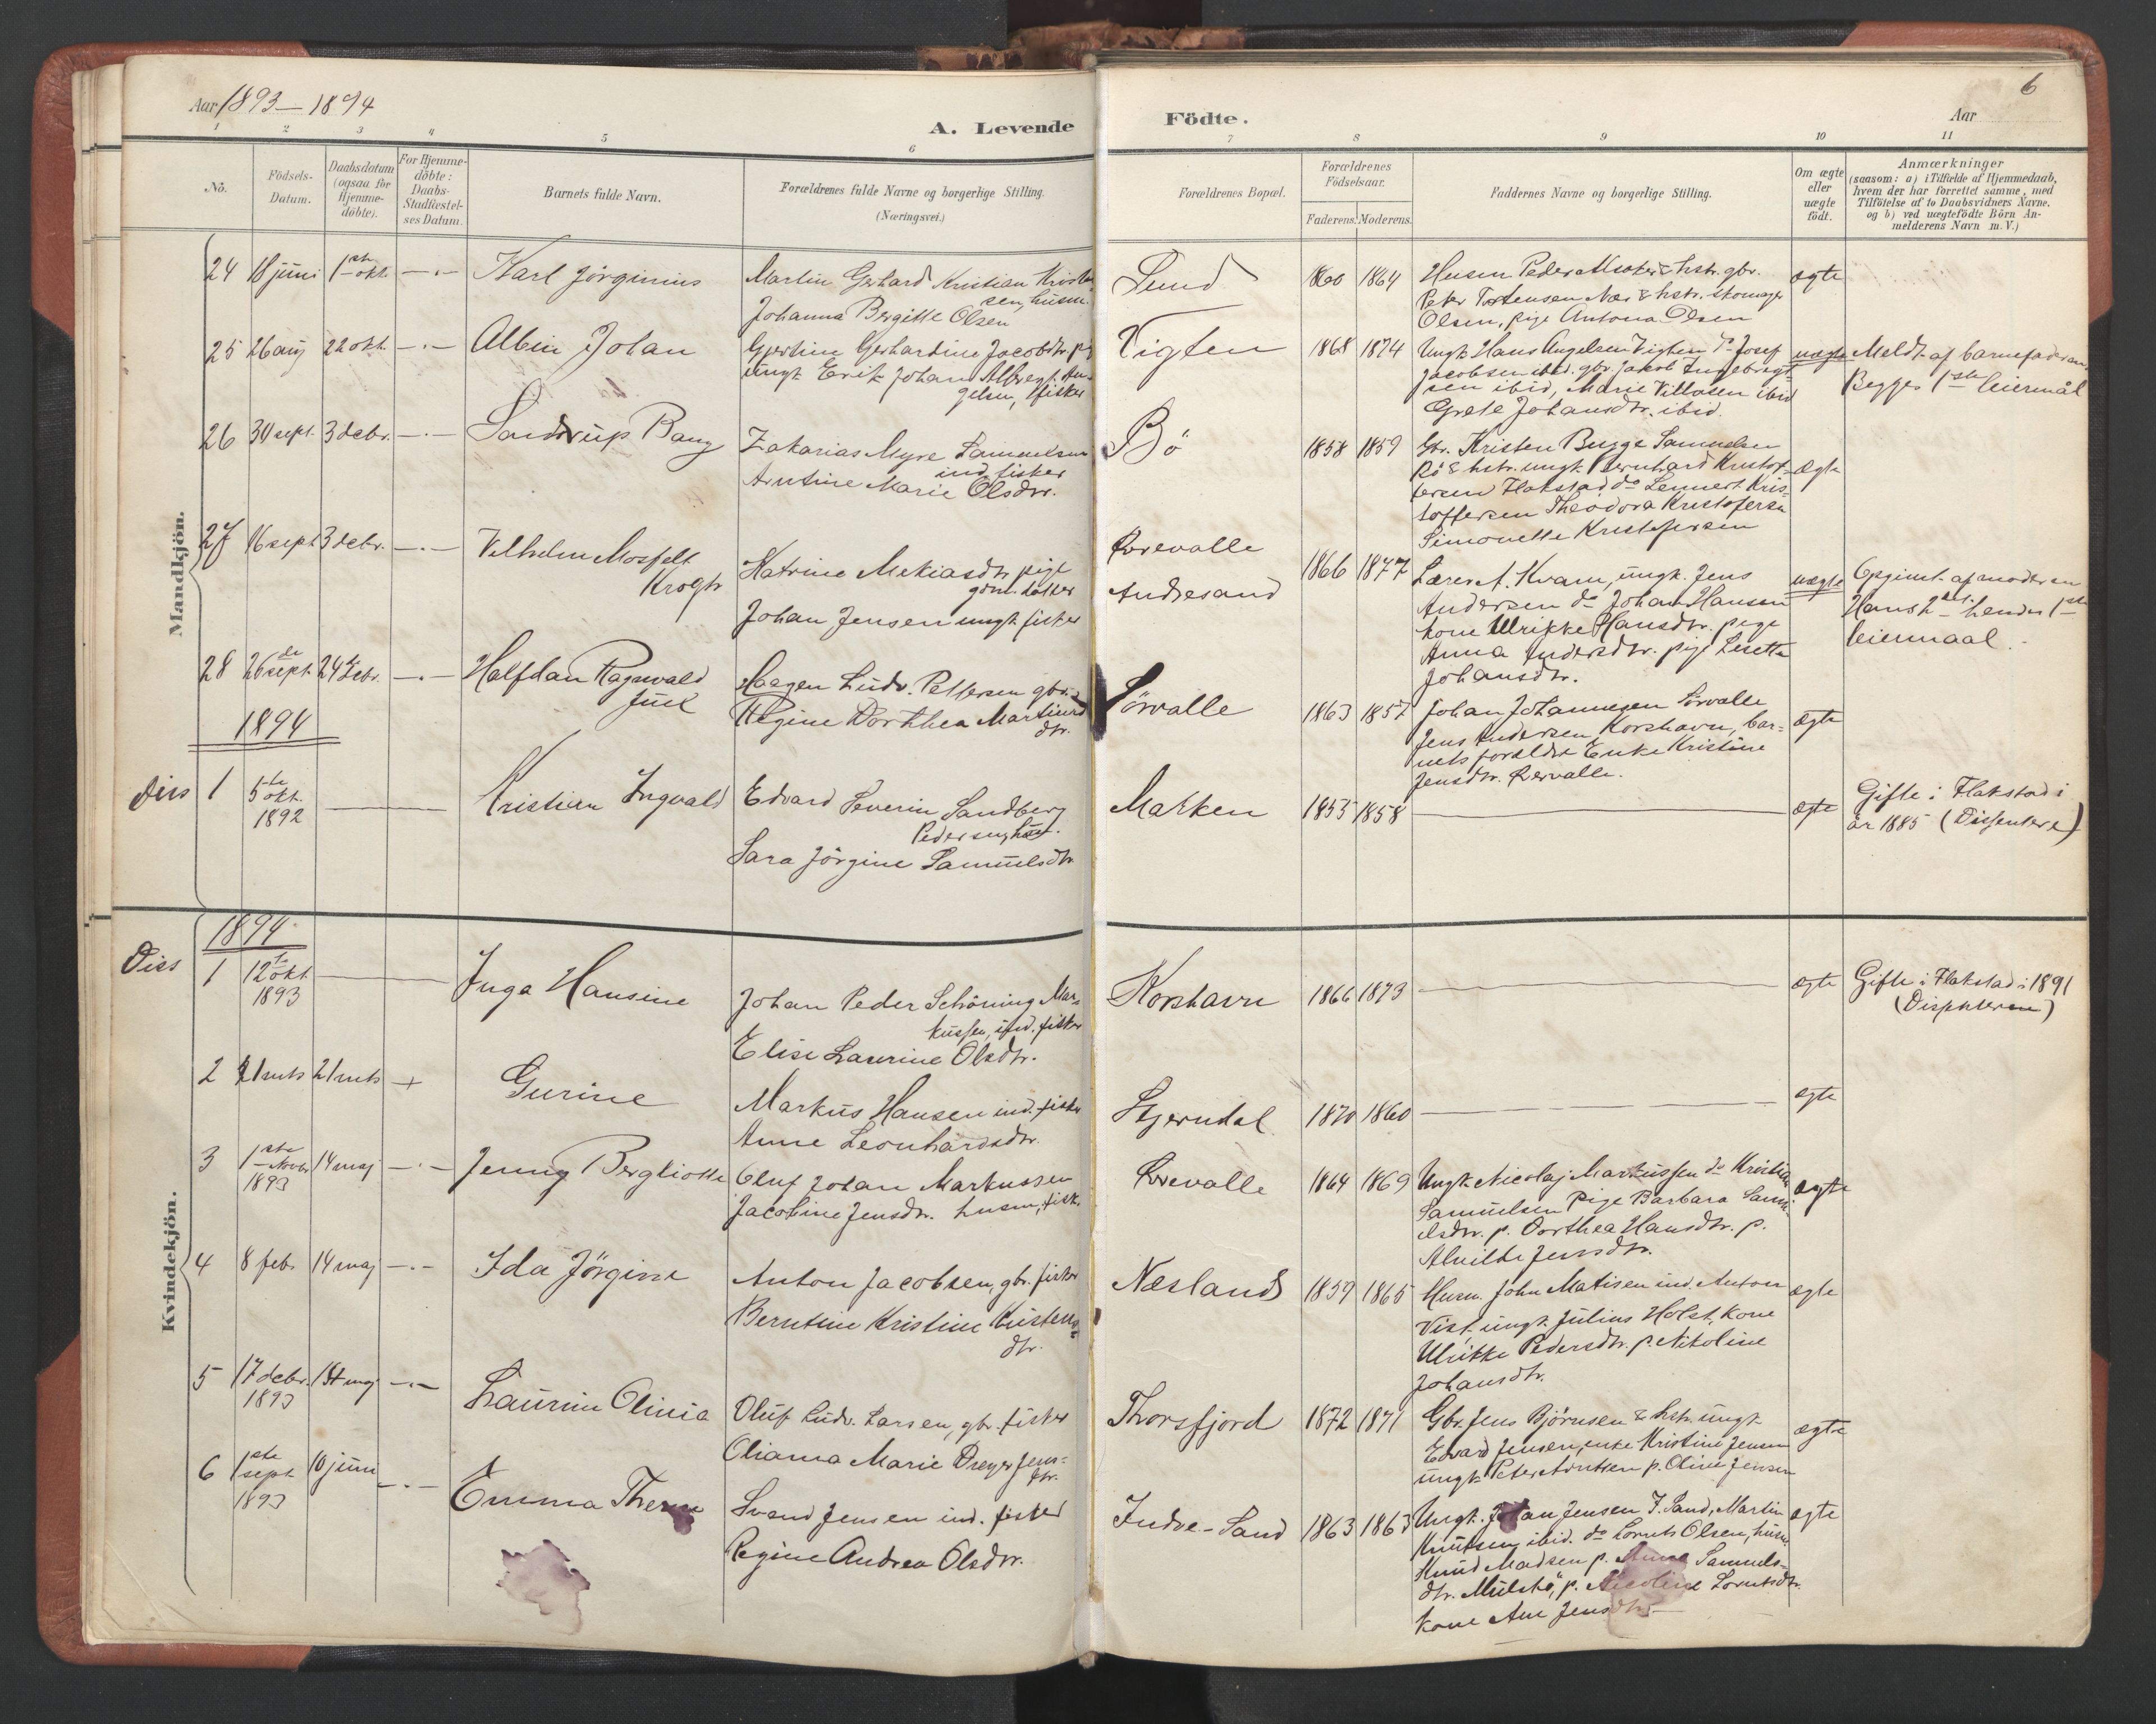 Aar 1893-1894
A. Levende
Födte.
6
Aar
1 2 3 4 5 6 7 8 9 10 11
No.
Födsels-Datum.
Daabsdatum (ogsaa for Hjemme-döbte).
For Hjemme-döbte: Daabs-Stadfæstel-ses Datum.
Barnets fulde Navn.
Forældrenes fulde Navne og borgerlige Stilling.
(Næringsvei.)
Forældrenes Bopæl.
Forældrenes Födselsaar.
Faderens. Moderens.
Faddernes Navne og borgerlige Stilling.
Om ægte eller uægte födt.
Anmærkninger
(saasom: a) i Tilfælde af Hjemmedaab, hvem der har forrettet samme, med Tilföielse af to Daabsvidners Navne. og b) ved uægtefödte Börn Anmelderens Navn m. V.)
Mandkjön.
24 18 juni 1ste okt. —.— Karl Jörginius
Martin Gerhard Kristian Kristensen, husm.
Johanna Bergitte Olsen
Sund 1860 1864
Peter Tostensen Næs & hstr.
Olsen, pige Antona Olsen
ægte
25 26 aug 22 okt. —.— Albin Johan
Gjertine Gerhardine Jacobsdtr. pig
ungk. Erik Johan Albregt. Angelsen, fisker
Vigten 1868 1874
Ungk. Hans Angelsen Vigten do Josef
Jacobsen ibid. gbr. Jakob Ingebrigtsen ibid, Marie Villasen ibid
Grete Johansdtr. ibid.
uægte
Meldt af barnefaderen.
Begges 1ste leiermål
26 30 sept. 3 decbr. —.— Sandrup Bang
Zakarias Myre Samuelsen
ind. fisker
Arntine Marie Olsdtr.
Bö 1858 1859
Gbr. Kristen Bugge Samuelsen
Bö & hstr. ungk. Bernhard Kristoffersen Flakstad do Lennert Kristoffersen Theodora Kristofersen
Simonette Kristofersen
ægte
27 16 sept 3 decbr. —.— Vilhelm Mosfelt
Krogh
Katrine Mekiasdtr. pige
Johan Jensen ungk. fisker
Andresand
1866 1877
Lærer A. Kvam, ungk. Jens
Andersen do Johan Hansen
kone Ulrikke Hansdtr. pige
Anna Andersdtr. pige Lisette
Johansdtr.
uægte
Opgivet af moderen
Hans 2det hendes 1ste
leiermaal.
28 26de sept. 24de decbr. —.— Halfdan Ragnvald
Juul
Haagen Ludv. Pettersen gbr.
Regine Dorthea Martinsdtr.
Sörvalle 1863 1857
Johan Johannesen Sörvalle
Jens Andersen Korshavn, barnets foreldre Enke Kristine
Jensdtr.
ægte
1894
Diss 1 5te okt. 1892 Kristian Ingvald
Edvard Severin Sandberg
Pedersen,
Sara Jörgine Samuelsdtr
Marken 1853 1858
ægte
Gifte i Flakstad i
år 1885 (Dissentere)
Kvindekjön.
1894
Diss 1 12te okt. 1893 Inga Hansine
Johan Peder Schöning Markussen, ind. fisker
Elise Laurine Olsdtr.
Korshavn 1866 1873
ægte
Gifte i Flakstad i 1891
2 21 mts 21 mts + Gurine
Markus Hansen ind. fisker
Anne Leonhardsdtr.
Stjerndal 1870 1860
ægte
3 1ste Novbr 1893 14 maj —.— Jenny Bergliotte
Oluf Johan Markussen
Jacobine Jensdtr. husm, fisk.
1864 1869
Ungk. Nicolaj Markussen do Kristian
Samuelsen Pige Barbara Samuelsdtr. p. Dorthea Hansdtr. p.
Alvilde Jensdtr.
ægte
4 8 feb. 14 maj —.— Ida Jörgine
Anton Jacobsen, gbr. fisker
Berntine Kristine Kristensdtr.
Næsland 1859 1865
Husm. John Matisen ind. Anton
Vist, ungk. Julius Holst, kone
Ulrikke Pedersdtr. p. Nikoline
Johansdtr.
ægte
5 17 decbr. 1893 maj —.— Laurine Olinia
Oluf Ludv. Larsen, gbr. fisker
Oliana Marie Dreyer Jensdtr.
Thorsfjord 1872 1871
Gbr. Jens Björnsen & hstr. ungk.
Edvard Jensen, enke Kristine Jensen
ungk. Peter Arntsen p. Oline Jensen
ægte
6 1ste sept 1893 10 juni —.— Emma Therese
Svend Jensen ind. fisker
Regine Andrea Olsdtr.
Indre-Sand 1863 1863
Ungk. Johan Jensen I. Sand, Martin
Knutsen ibid. do Lornts Olsen, husm.
Knud Madsen p. Anne Samuelsdtr. p. Nicoline Lorntsdtr.
kone Ane Jensdtr.
ægte